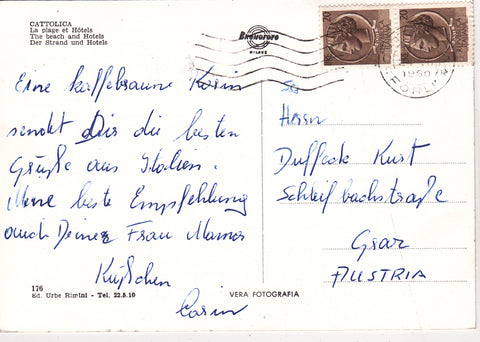 CATTOLICA
La plage et Hôtels
The beach and Hotels
Der Strand und Hotels
Bromocoro
MILANO
1960
FORLI
Eine kaffebraune Karin
sendet Dir die besten
Grüße aus Italien.
Meine beste Empfehlung
auch Deiner Frau Mama
Küßchen
Carin
An
Herrn
Duffeck Kurt
Schleifbachstraße
Graz
AUSTRIA
176
Ed. Urbe Rimini - Tel. 22.5.10
VERA FOTOGRAFIA